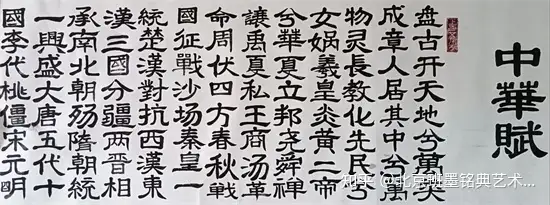 中華賦
盘古开天地兮萬类
成章人居其中兮萬
物灵長教化先民兮
女娲羲皇炎黄二帝
兮華夏立邦尧舜禅
讓禹夏私王商汤革
命周伏四方春秋戰
國征戰沙场秦皇一
統楚漢對抗西漢東
漢三國分疆两晋相
承南北朝殇隋朝統
一興盛大唐五代十
國李代桃僵宋元明
知乎 @北京班墨铭典艺术...